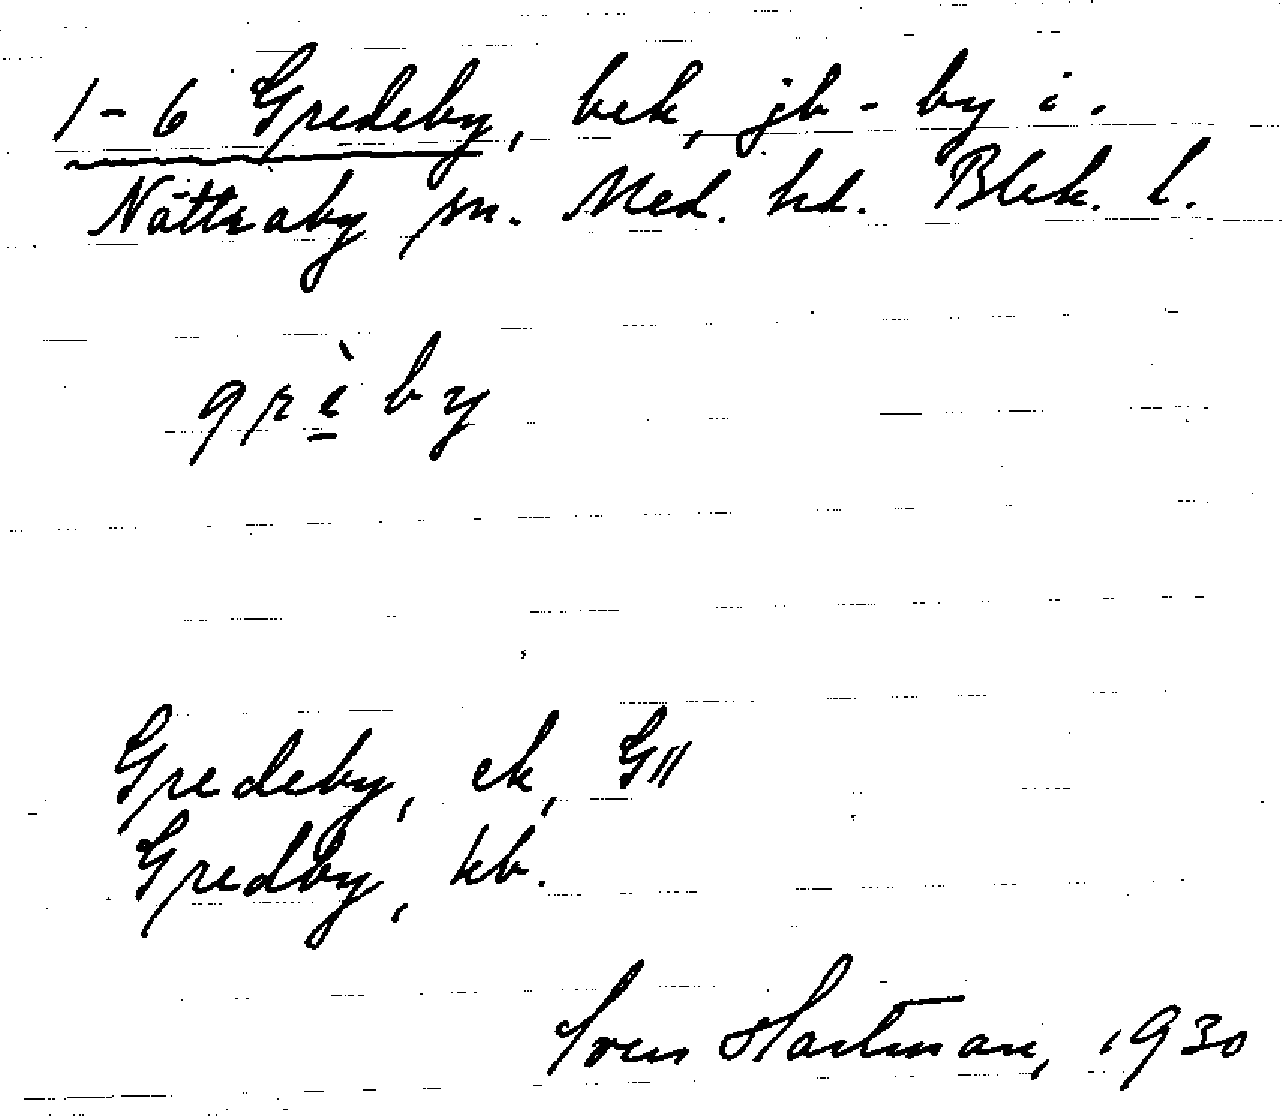 1-6 Gredeby, bek, jb-by i.
Nättraby sn. Med. hd. Blek. l.
grè̱by
Gredeby, ek, G11
Gredby, kb.
Sven Hartman, 1930